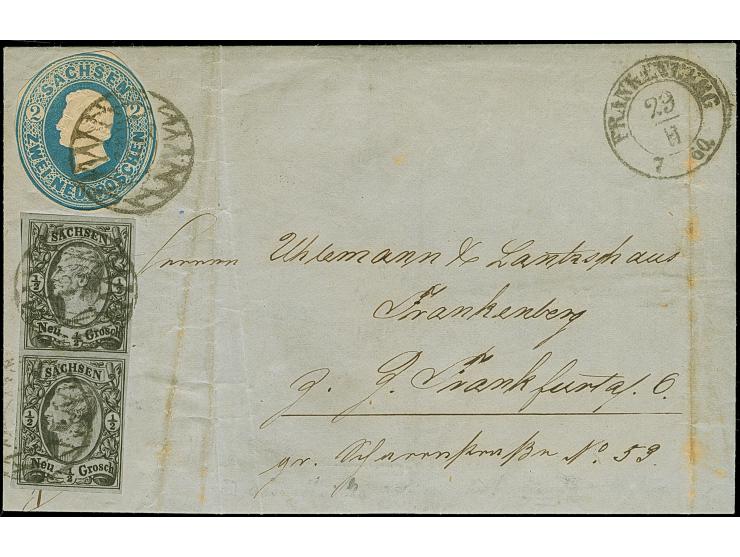 SACHSEN
2 2
ZWEI NEUGROSCHEN
FRANKENBERG
29
II
7 60.
SACHSEN
½ ½
Neu ½ Grosch
SACHSEN
½ ½
Neu ½ Grosch
Herren Uhlemann & Lantzschaus
Frankenberg
z. Z. Frankfurt a/. O.
gr. Scharrnstraße No. 53.